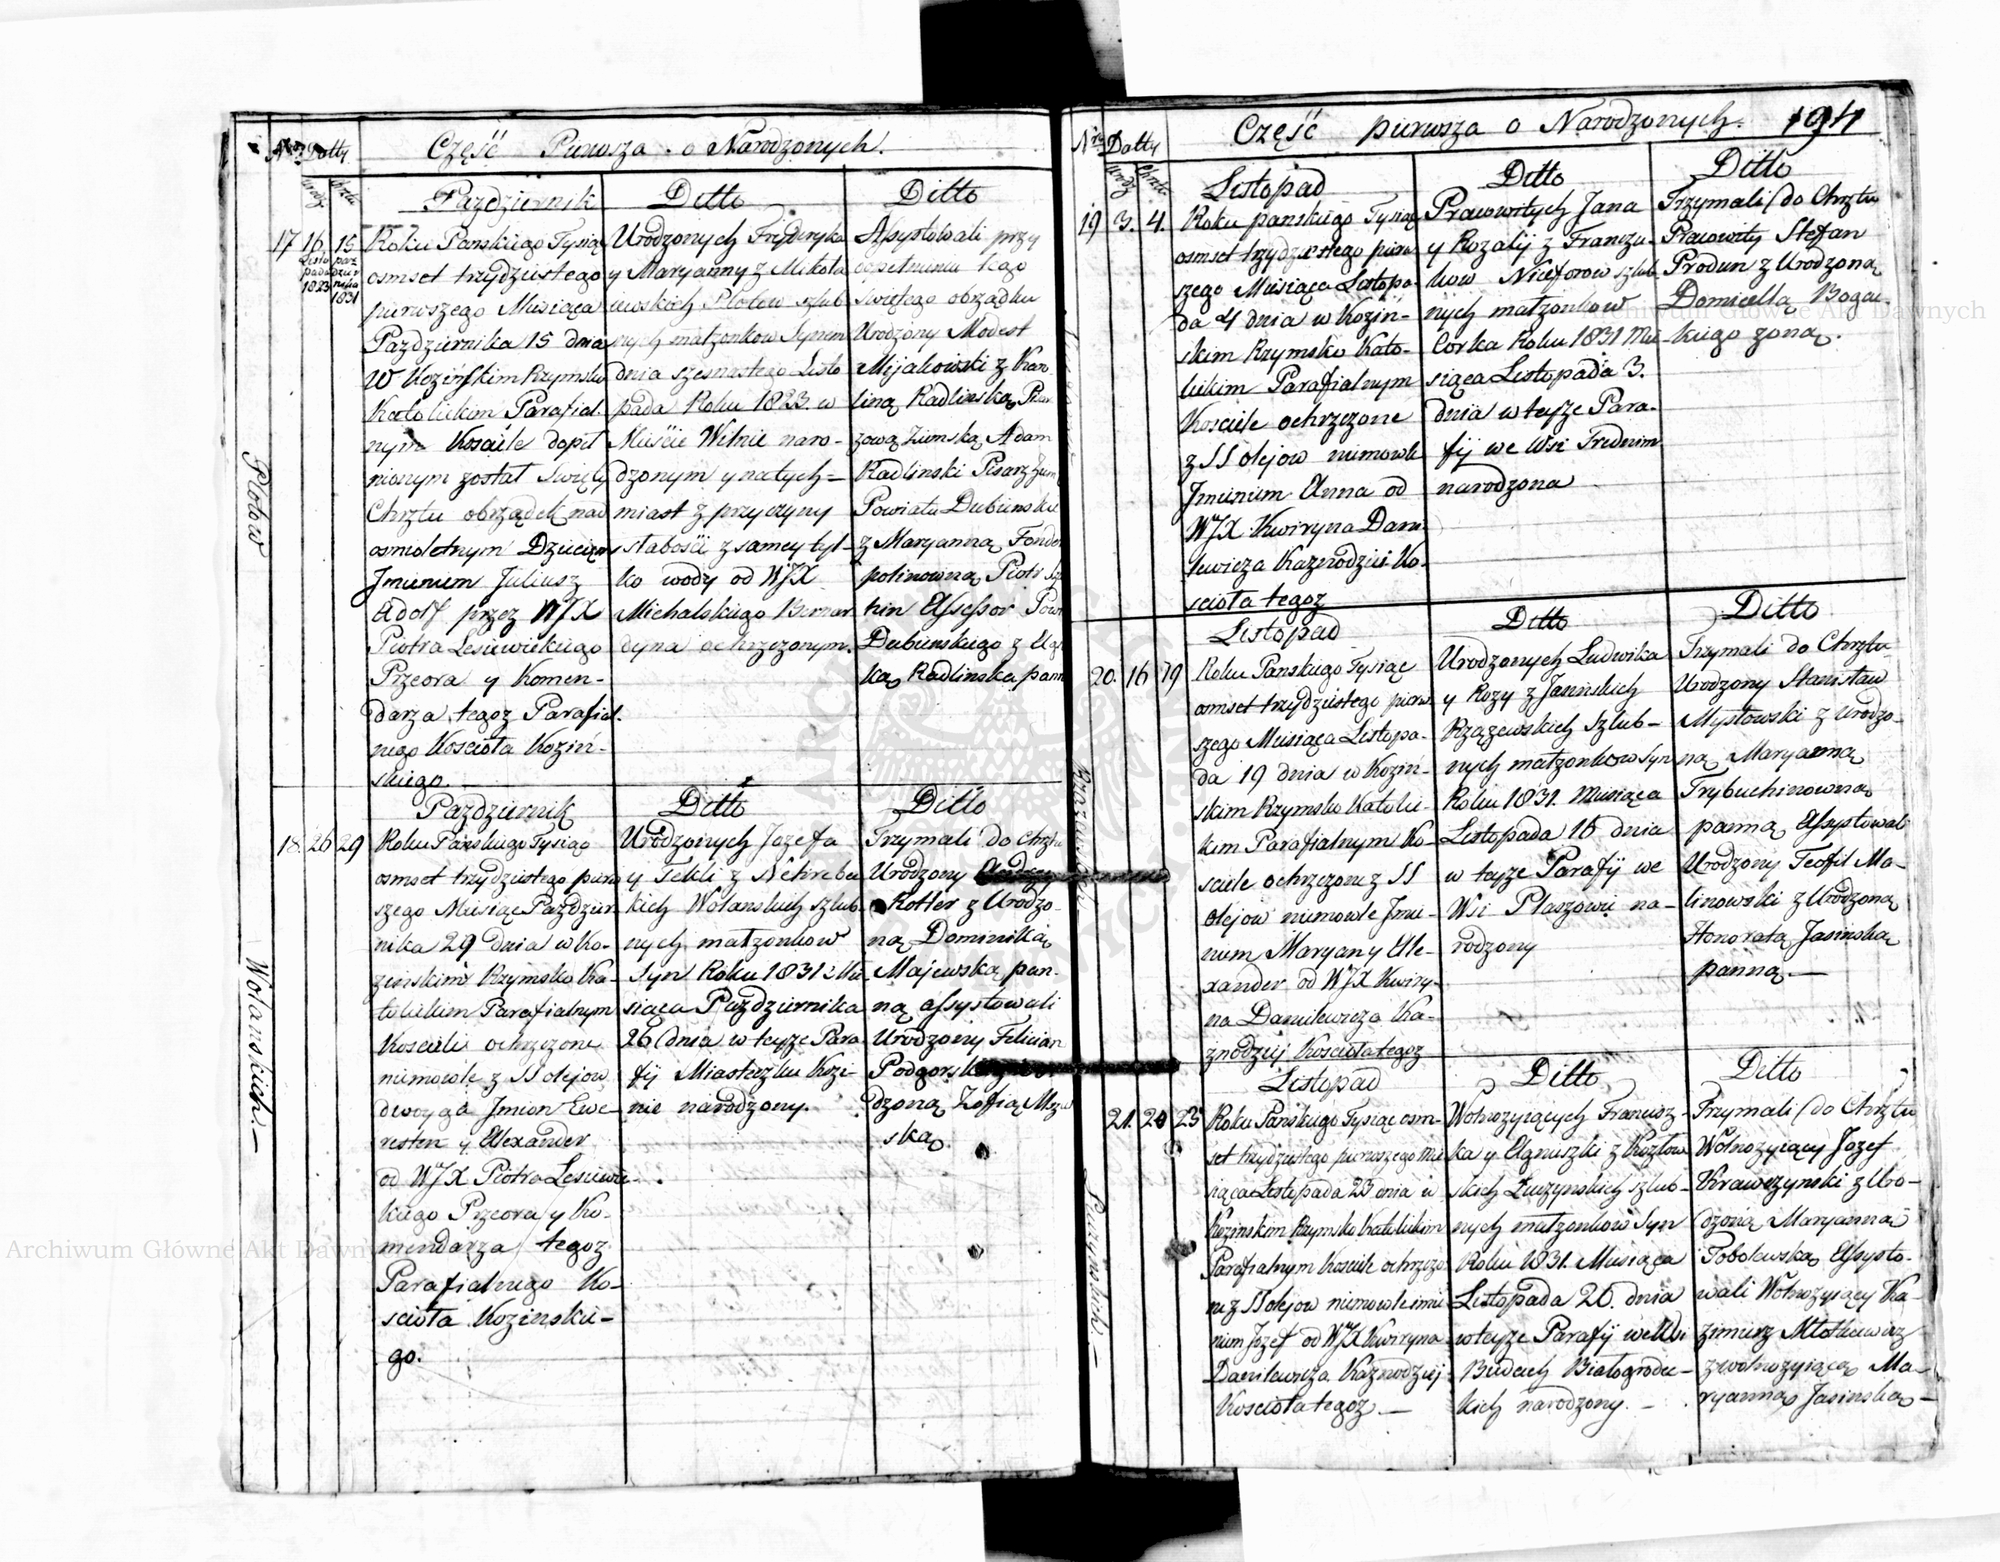 Nro Datty
Część Pierwsza o Narodzonych.
Urodz. Chrztu
Pazdziernik
17 16 Listopada 1823 15 pazdziernika 1831
Roku Panskiego Tysiąc
osmset trzydziestego
pierwszego Miesiąca
Pazdziernika 15 dnia
W Kozinskim Rzymsko
Katolickim Parafial.
nym Kosciele dopeł
nionym został swięty
Chrztu obrządek nad
osmoletnym Dziecięm
Jmieniem Juliusz
Adolf przez WJX
Piotra Lesiewickiego
Przeora y Komen-
darza tegoz Parafial.
nego Kościoła Koziń-
skiego.
Ditto
Urodzonych Fryderyka
y Maryanny z Mikoła
iewskich Plobow szlub
nych małzonkow Synem
dnia szesnastego Listo
pada Roku 1823. w
Mieście Wilnie naro-
dzonym y natych-
miast z przyczyny
słabości z samey tyl-
ko wody od WJX
Michalskiego Bernar
dyna ochrzczonym.
Ditto
Assystowali przy
dopełnieniu tego
swiętego obrządku
Urodzony Modest
Mijakowski z Karo
liną Radlinską Pisar
zową Ziemską Adam
Radlinski Pisarz Ziem
Powiatu Dubienskie
z Maryanną
Piotr
Assessor Pow
Dubienskiego z
ką Radlinska pann
Plobow
Pazdziernik
18. 26 29
Roku Panskiego Tysiąc
osmset trzydziestego pierw
szego Miesiąc Pazdzier
nika 29 dnia w Ko-
zinskim Rzymsko Ka-
tolickim Parafialnym
Kosciele ochrzczone
niemowle z SS olejow
dwoyga Jmion Ewe-
risten y Alexander
od WJX Piotra Lesiewic-
kiego Przeora y Ko-
mendarza tegoz
Parafialnego Ko-
scioła Kozinskie-
go.
Ditto
Urodzonych Jozefa
y Tekli z Netrebec
kich Wolanskich szlub-
nych małzonkow
Syn Roku 1831 Mie-
siąca Pazdziernika
26 dnia w teyze Para
fij Miasteczku Kozi-
nie narodzony.
Ditto
Trzymali do Chrztu
Urodzony
Kotler z Urodzo-
ną Dominiką
Majewską pan-
ną assystowali
Urodzony Felician
Podgorski
dzoną Zofią
ską
Wolanskich.-
Nro Datty
Część pierwsza o Narodzonych. 194
Urodz Chrztu
Listopad
19 3. 4.
Roku panskiego Tysiąc
osmset trzydziestego pierw
szego Miesiąca Listopa-
da 4 dnia w Kozin-
skim Rzymsko Kato-
lickim Parafialnym
Kosciele ochrzczone
z SS olejow niemowle
Jmieniem Anna od
WJX Kwiryna Dani-
lewicza Kaznodziei Ko-
scioła tegoz
Ditto
Pracowitych Jana
y Rozalij z Francu-
kow Niceforow szlub
nych małzonkow
Corka Roku 1831 Mie-
siąca Listopada 3.
dnia w teyze Para-
fij we Wsi
narodzona
Ditto
Trzymali do Chrztu
Pracowity Stefan
Produn z Urodzoną
Domicellą Bogac-
kiego zoną.
Listopad
20. 16 19
Roku Panskiego Tysiąc
osmset trzydziestego pierw
szego Miesiąca Listopa-
da 19 dnia w Kozin-
skim Rzymsko Katolic-
kim Parafialnym Ko-
sciele ochrzczone z SS
Olejow niemowle Jmie-
niem Maryan y Ale-
xander od WJX Kwiry-
na Danilewicza Ka-
znodziej Kosciola tegoz
Ditto
Urodzonych Ludwika
y Rozy z Jasinskich
Rzązewskich Szlub-
nych małzonkow Syn
Roku 1831. Miesiąca
Listopada 16 dnia
w teyze Parafij we
Wsi Plaszowie na-
rodzony
Ditto
Trzymali do Chrztu
Urodzony Stanisław
Mysłowski z Urodzo-
ną Maryanną
Trybuchinowną
panną Assystowali
Urodzony Teofil Ma-
linowski z Urodzoną
Honoratą Jasinską
panną.-
Listopad
21. 20 23
Roku Panskiego Tysiąc osm-
set trzydziestego pierwszego Mie
siąca Listopada 23 dnia w
Kozinskim Rzymsko Katolickim
Parafialnym Kosciele ochrzczo-
ne z SS olejow niemowle imie
niem Jozef od WJX Kwiryna
Danilewicza Kaznodziej
Kosciola tegoz.-
Ditto
Wolnozyiących Francisz-
ka y Agnieszki z Kozłow
skich Luczynskich szlub-
nych małzonkow Syn
Roku 1831. Miesiąca
Listopada 20. dnia
w teyze Parafij we Wsi
Budach Białogrodec-
kich narodzony.-
Ditto
Trzymali do Chrztu
Wolnozyiący Jozef
Krawczynski z Uro-
dzoną Maryanną
Tobolewską Assysto-
wali Wolnozyiący Ka-
zimierz Młotkiewicz
z wolnozyiącą Ma-
ryanną Jasinską-
Archiwum Główne Akt Dawnych
Archiwum Główne Akt Dawnych